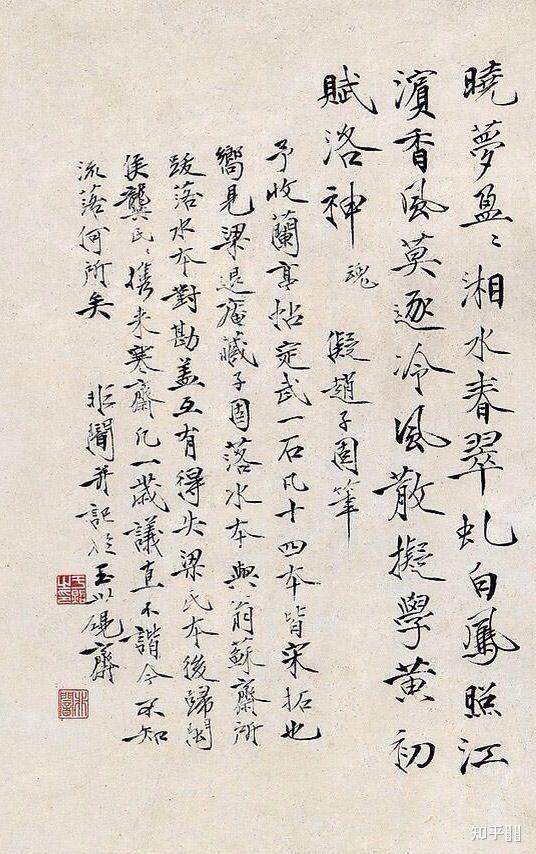 曉夢盈〻湘水春翠虬白鳳照江
濱香風莫逐冷風散擬學黃初
賦洛神
魂
擬趙子固筆
予收蘭亭帖定武一石凡十四本皆宋拓也
嚮見梁退庵藏子固落水本與翁蘇齋所
跋落水本對勘蓋互有得失梁氏本後歸閩
侯龔氏〻攜來寒齋凡一歲議直不諧今不知
流落何所矣
非闇并記於玉㕥硯齋
知乎